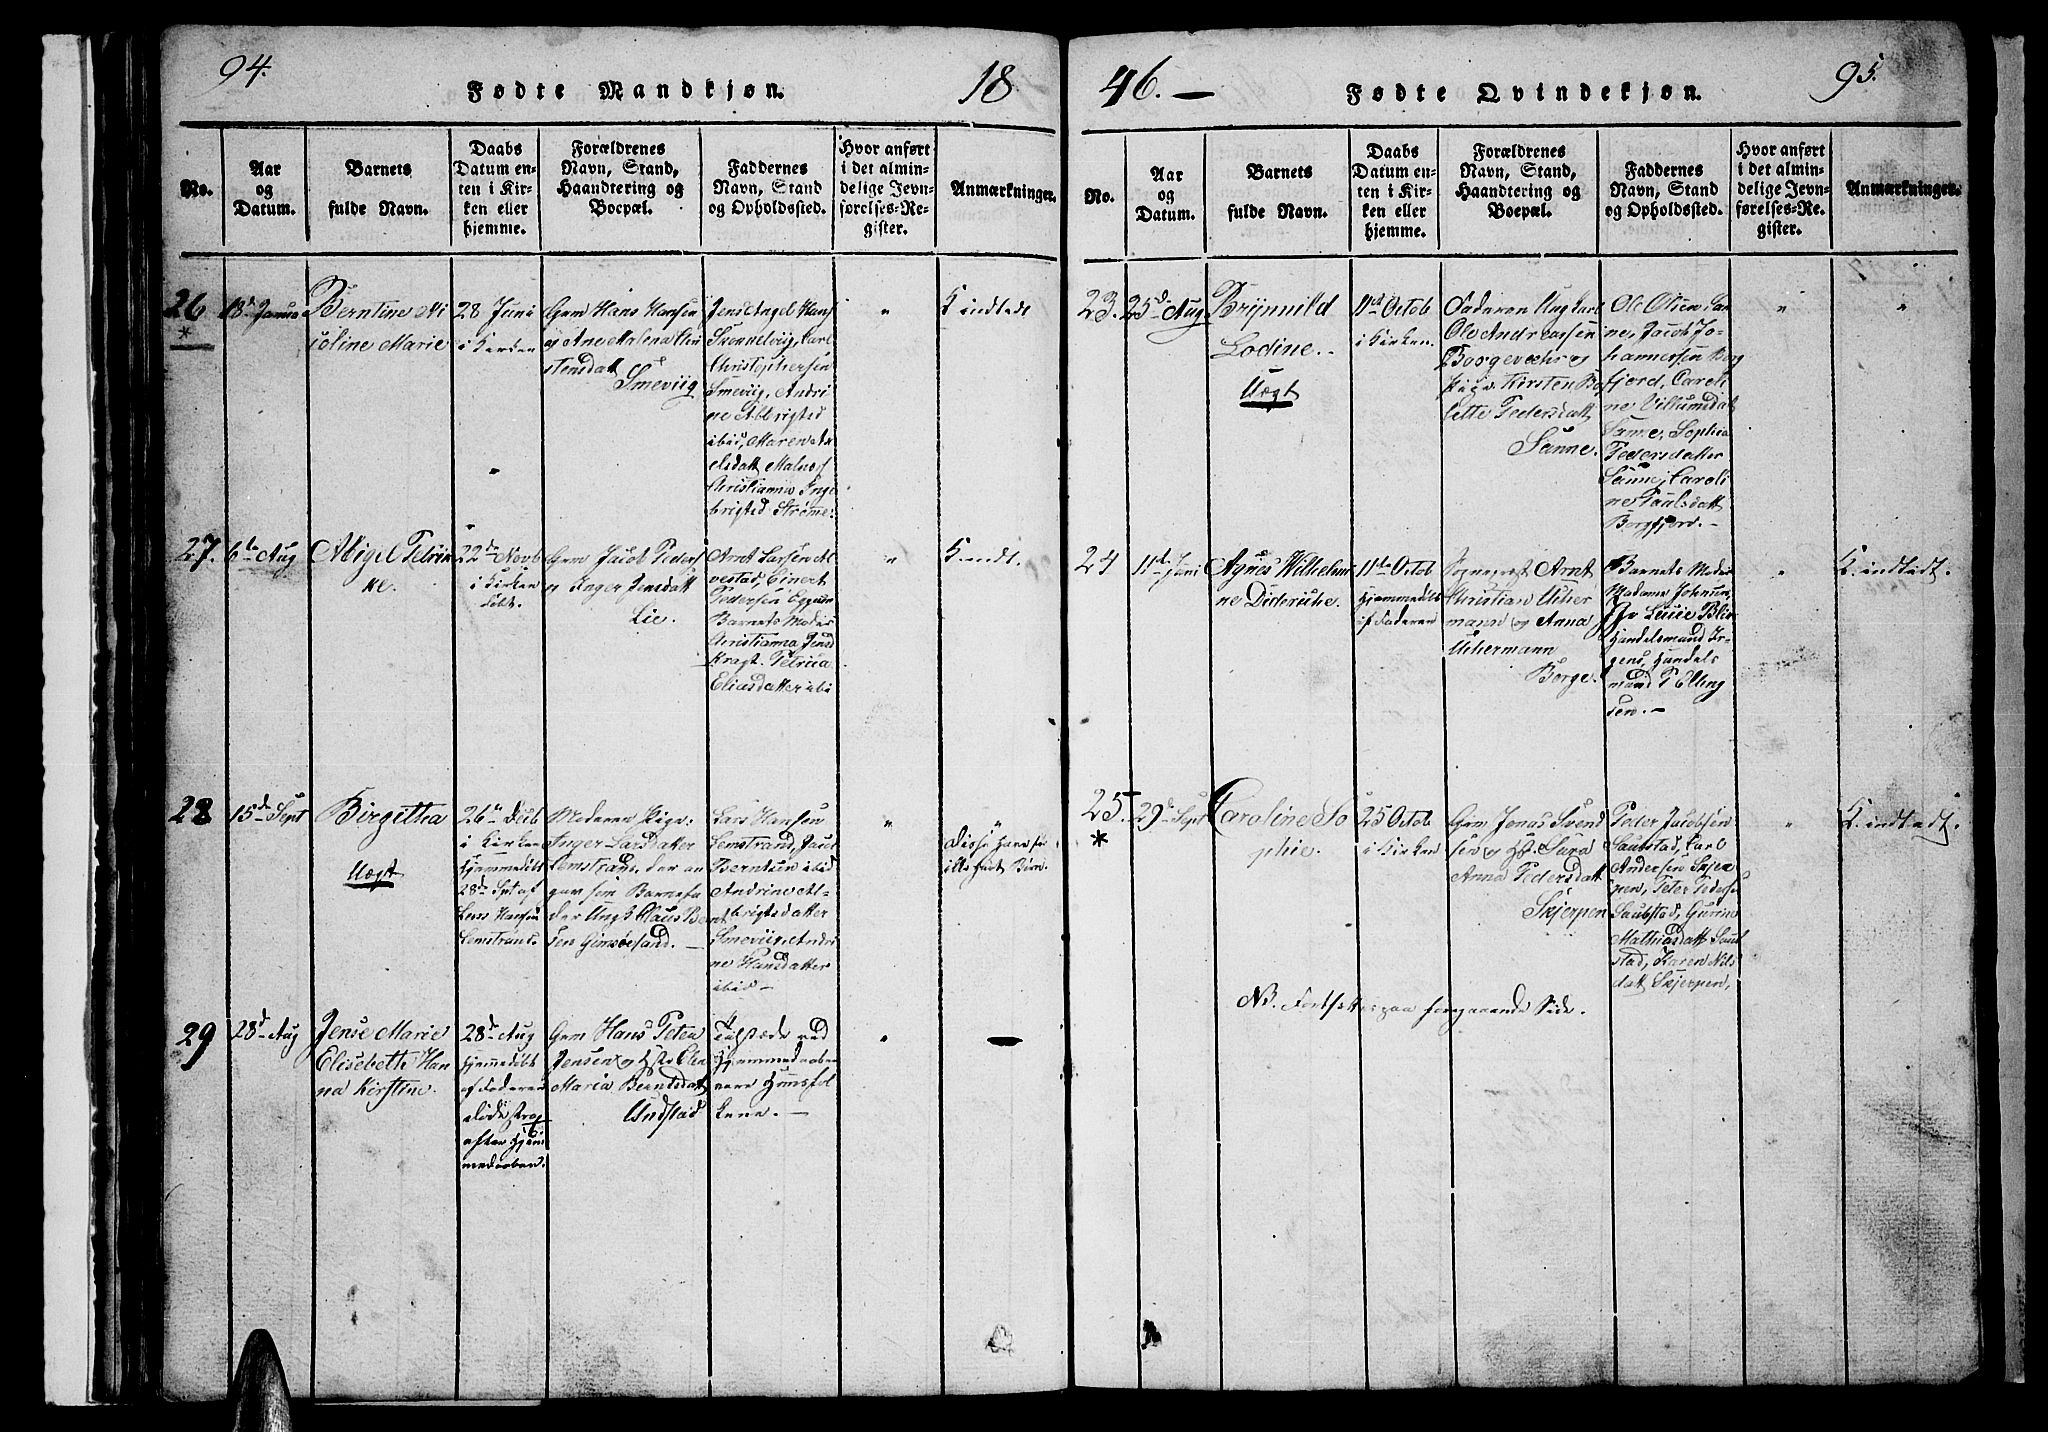 94.
Fødte Mandkjøn.
18
No.
Aar
og
Datum.
Barnets
fulde Navn.
Daabs
Datum en-
ten i Kir-
ken eller
hjemme.
Forældrenes
Navn, Stand,
Haandtering og
Boepæl.
Faddernes
Navn, Stand
og Opholdssted.
Hvor anført
i det almin-
delige Jevn-
førelses-Re-
gister.
Anmærkninger.
26
*
18d Janua
Berntine Ni
coline Marie
28 Juni
i Kirken
Gm Hans Hansen
og Ane Malena Chri
stensdat
Smeviig
Carl
Christophersen
Smeviig, Andri
ne Albrigtsd
ibid, Maren
Christianna Inge
brigtsd Strømme.
"
K indtadt
27.
6te Aug
Abigel Petrin
ne.
22de Novb
i Kirken
døbt.
Gm Jacob Peders
og Inger Jensdatt
Lie.
Arnt Larsen Al
vestad, Einert
Pedersen Eggum
Barnets Moder
Christianna Jensd
Kragt. Petrica
Eliasdatter ibid
"
K. indt.
28
15d Sept
Birgitha
Uægt
26de Decb
i Kirken
hjemmedøbt
28de Spt af
Lars Hansen
Lemstrand.
Moderen Pige
Inger Larsdatter
Lemstrand, der an
gav som Barnefa
der Ungk Claus Bent
sen Gimsøesand.
Lars Hansen
Lemstrand, Jacob
Berntsen ibid
Andrine Al-
brigtsdatter
Smeviig, Andri
ne Hansdatter
ibid –
"
"
Disse have for
ill gudt Børn.
29
28d Aug
Jense Marie
Elisabeth Han
na Kirstine.
28d Aug
hjemmedøbt
af Faderen
døde strax
efter Hjem
medaaben.
Gm Hans Peter
Jensen og Hst Elen
Maria Berntsdatt
Undstad
Tilstæde ved
Hjemmedaaben
vare Huusfol
kene. –
"
–
46. –
Fødte Qvindekjøn.
95.
No.
Aar
og
Datum.
Barnets
fulde Navn.
Daabs
Datum en-
ten i Kir-
ken eller
hjemme.
Forældrenes
Navn, Stand,
Haandtering og
Boepæl.
Faddernes
Navn, Stand
og Opholdssted.
Hvor anført
i det almin-
delige Jevn-
førelses-Re
gister.
Anmærkninger.
23.
25d Aug
Brynnild
Lodine.
Uægt
11te Octob
i Kirken.
Faderen Ungkarl
Ole Andreassen
Borgevær og
Pige Kirsten Bo
lette Pedersdatt
Sanne.
Ole Olsen San
ne, Jacob Jo-
hannessen Borg
fjord, Caroli
ne Villumsdat
Sanne, Sophia
Pedersdatter
Sanne, Caroli
ne Paulsdatt
Borgfjord. –
"
"
24
11d Juni
Agnes Wilhelmi
ne Dideriche.
11te Octob
hjemmedøbt
af Faderen
Sognepræst Arnt
Christian Ucher
mann og Anna
Uchermann
Borge.
Barnets Moder
Madame Johnsen,
Jfr Lucie Blix
Handelsmand Ir
gens, Handels
mand P Elling
sen. –
"
K. indtadt.
25.
*
29d Sept
Caroline So
phie.
25 Octob
i Kirken
Gm Jonas Svend
sen og Hst Sara
Anna Pedersdatt
Skjerpen
Peder Jacobsen
Saubstad, Carl
Andersen Skjer
pen, Peter Peders
Saubstad, Gurine
Mathiasdatt Saub
stad, Karen Nils
dat Skjerpen,
"
K. indtadt.
NB. Fortsættes paa foregaaende Side.